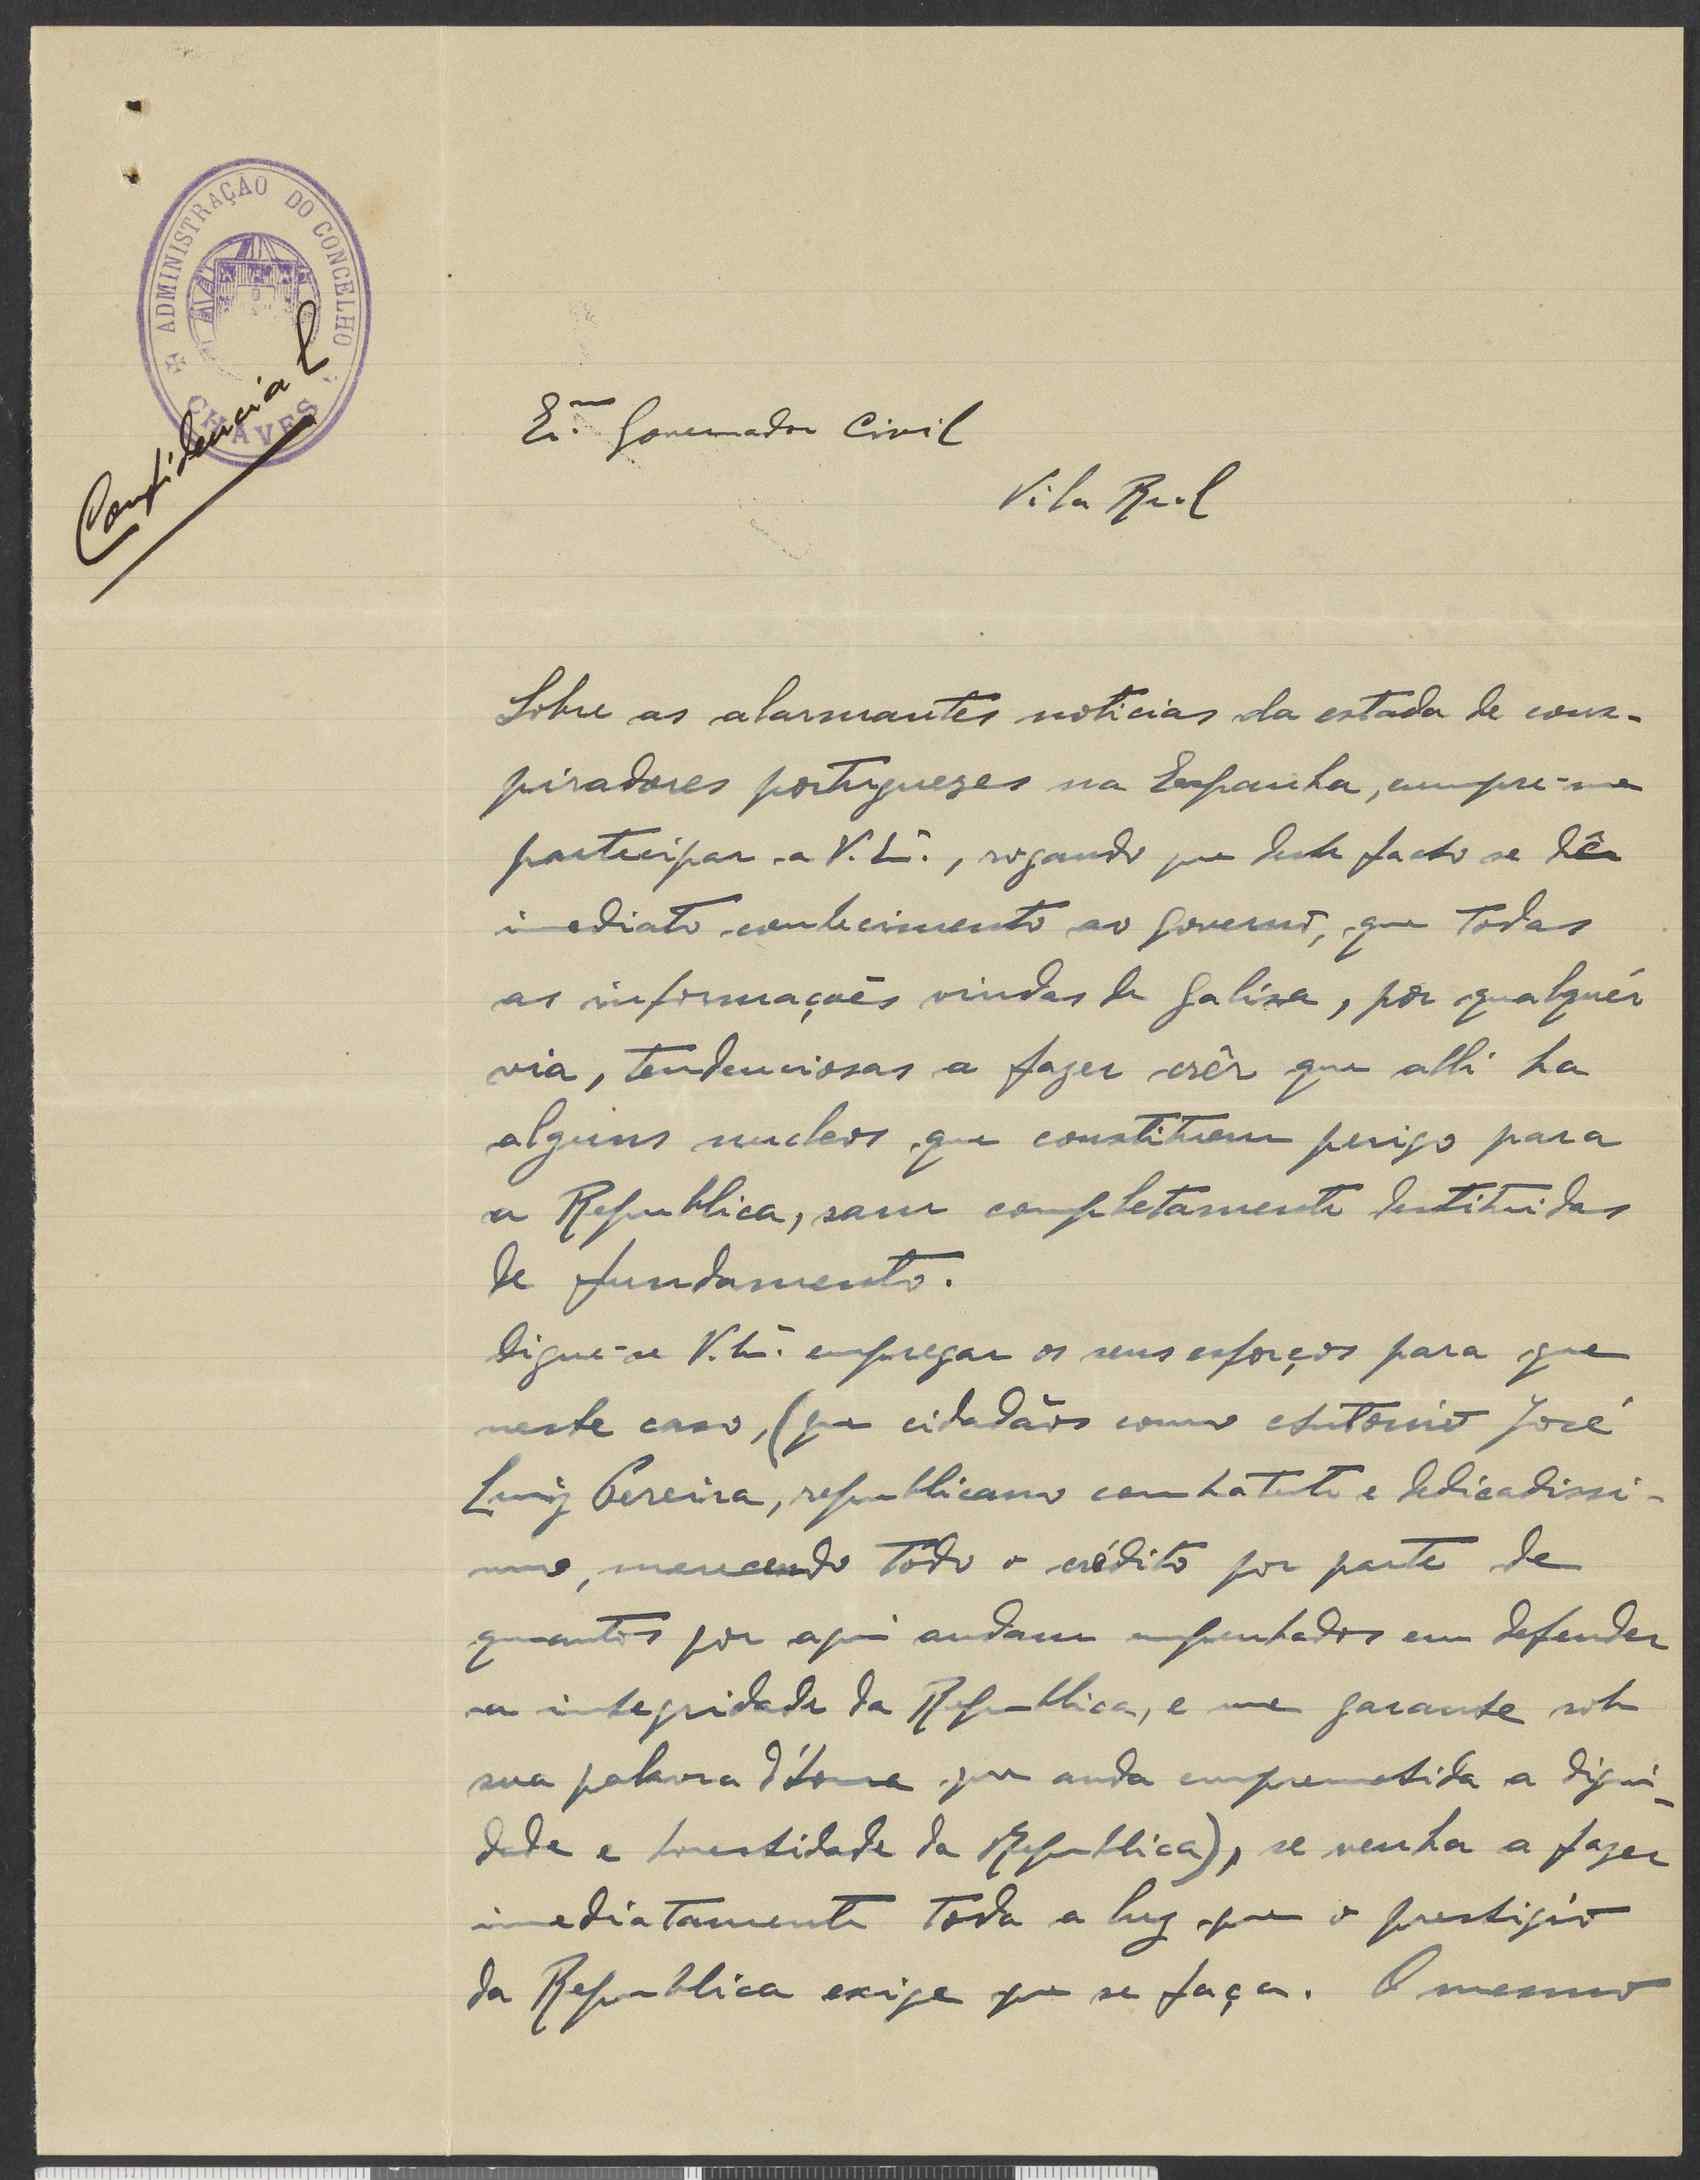 ADMINISTRAÇÃO DO CONCELHO
CHAVES
Confidencial
Ex.mo Governador Civil
Vila Real
Sobre as alarmantes noticias da estada de cons-
piradores portuguezes na Espanha, cumpre-me
participar a V. Ex.ª, rogando que deste facto se dê
imediato conhecimento ao Governo, que todas
as informações vindas da Galiza, por qualquér
via, tendenciosas a fazer crêr que alli ha
alguns nucleos que constituem perigo para
a Republica, sam completamente destituidas
de fundamento.
Digne-se V. Ex.ª empregar os seus esforços para que
neste caso, (que cidadãos como Antonio José
Luiz Pereira, republicano combatente e dedicadissi-
mo, merecendo todo o crédito por parte de
quantos por aqui andam empenhados em defender
a integridade da Republica, e me garante sob
sua palavra d'honra que anda comprometida a digni-
dade e honestidade da Republica), se venha a fazer
imediatamente toda a luz que o prestigio
da Republica exige que se faça. O mesmo